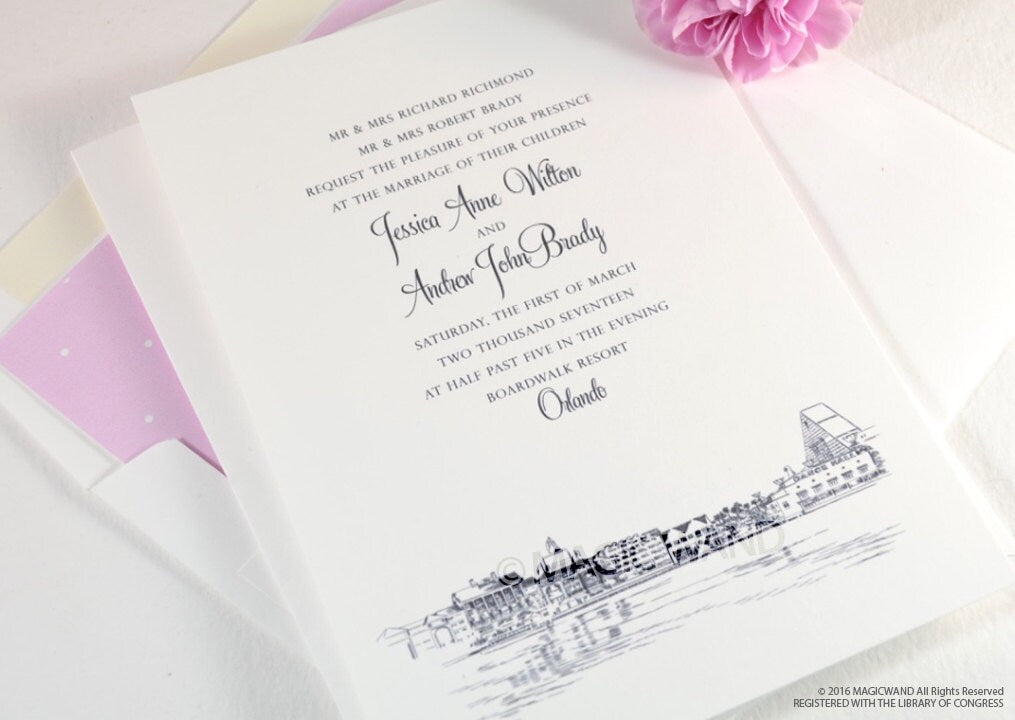 MR & MRS RICHARD RICHMOND
MR & MRS ROBERT BRADY
REQUEST THE PLEASURE OF YOUR PRESENCE
AT THE MARRIAGE OF THEIR CHILDREN
Jessica Anne Wilton
AND
Andrew John Brady
SATURDAY, THE FIRST OF MARCH
TWO THOUSAND SEVENTEEN
AT HALF PAST FIVE IN THE EVENING
BOARDWALK RESORT
Orlando
DANCE HALL
© MAGICWAND
© 2016 MAGICWAND All Rights Reserved
REGISTERED WITH THE LIBRARY OF CONGRESS